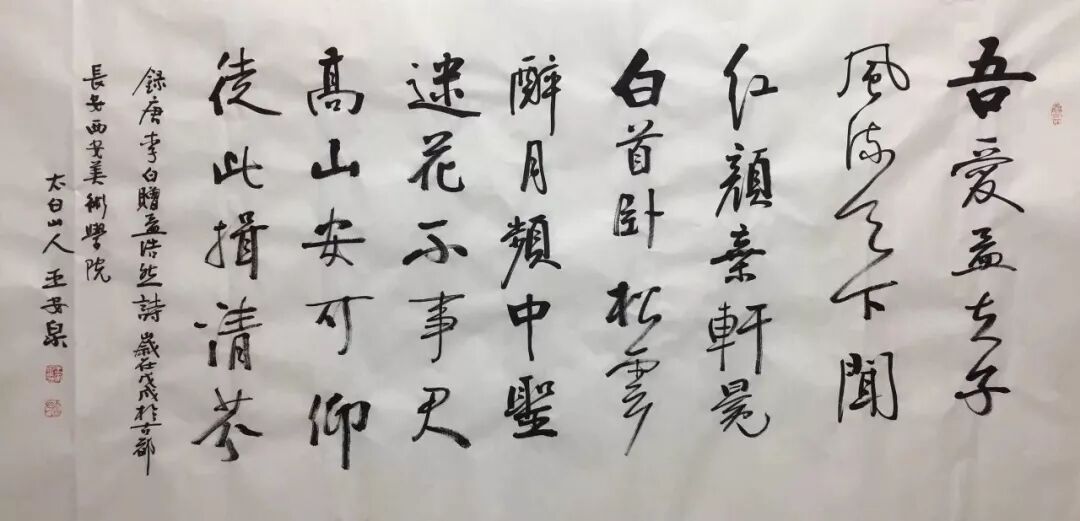 吾愛孟夫子
風流天下聞
紅顏棄軒冕
白首卧松雲
醉月頻中聖
迷花不事君
高山安可仰
徒此揖清芬
錄唐李白贈孟浩然詩 歲在戊戌於古都
長安西安美術學院
太白山人王安泉